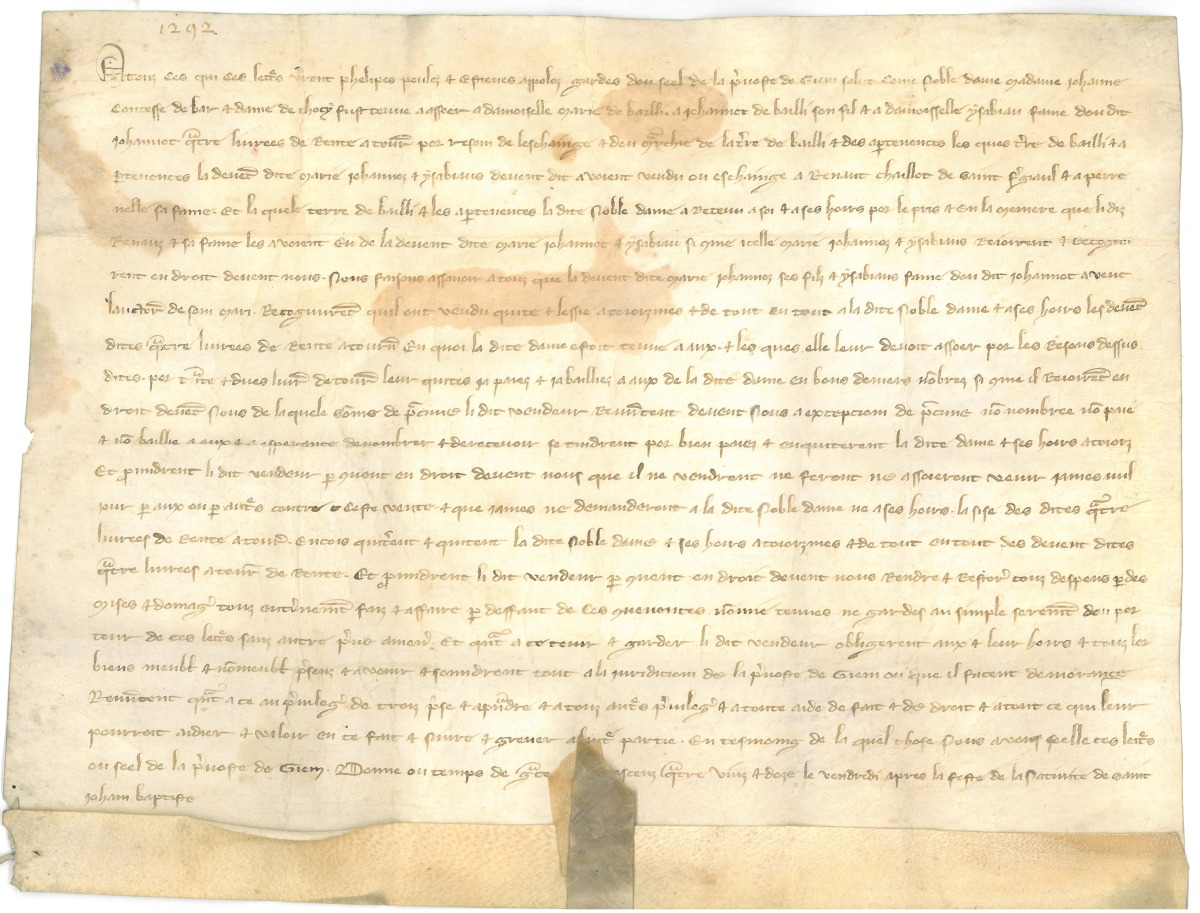 1292
A touz ces qui ces lett's v'ront phelipes poulez & Estienes apoloz gardes dou seel de la p'voste de Giem salut Come Noble dame madame johanne
Contesse de bar & dame de thocy fust tenue a asseer a damoiselle marie de bailli. a johannot de bailli son fil & a damoisselle ysabiau fame dou dit
johannot q̃tre livrees de Rente a tourñ por reson de leschainge & dou m'chie de la t're de bailli & des ap'tenences les ques t're de bailli & a
p'tenences la devent dite marie johannoz & ysabiaus devent dit avoient vendu ou eschainge a Renaut chaillot de saint f'giaul & a perre
nelle sa fame. Et la quele terre de bailli & les ap'tenences la dite Noble dame a Retenu a soi & a ses hoirs por le pris & En la meniere que li diz
Renauz & sa fame les avoient Eu de la devent dite marie johannot & ysabiau si cõme icelle marie johannoz & ysabiaus Requirent & Recognu
rent en droit devent nous. Nous faisons assavoir a touz que la devent dite marie johannoz ses filz & ysabiaus fame dou dit johannot a vent
lauctorite de son mari. Recognurent quil ont vendu quite & lessie a touzrmes & de tout en tout a la dite Noble dame & a ses hoirs les devẽt
dites q̃tre livrees de Rente a tourñ En quoi la dite dame estoit tenue a aux. & les ques elle leur devoit asseer por les Resons dessus
dites. por & livr' de tourñ leur quites ja paiez & ja bailliez a aux de la dite dame en bons deniers nõbrez si cõme il en
droit devẽt Nous de la quele sõme de p̃cune li dit vendeur Renũcent devent Nous a exception de p̃cune nõ nombree nõ paie
& nõ baillie a aux & a esperance de nombrer & de recevoir se tindrent por bien paiez & enquiterent la dite dame & ses hoirs a touzrz
Et p'mistrent li dit vendeur p' quent en droit devent nous que il ne vendront ne feront ne assoieront venir james nul
jour p' aux ou p' aut's contre ceste vente & que james ne demanderont a la dite Noble dame ne a ses hoirs. la sise des dites q̃tre
livrees de Rente a tourñ. Encois quit'ent & quitent la dite Noble dame & ses hoirs a touzrmes & de tout en tout des devent dites
q̃tre livrees a tourñ de Rente. Et p'mistrent li dit vendeur p' quent en droit devent nous Rendre & Restor' touz despens p'des
mises & domag' touz faiz & affaire p' deffaut de ces cõvenences nõme tenues ne gardes au simple seremẽt dou por
teur de ces lett's sanz autre p've amen'. Et q̃nt a ce tenir & garder li dit vendeur obligerent aux & leur hoirs & touz ler
biens meubl' & nõmeubl' p'senz & a venir & sosmistrent tout a la juridicion de la p'voste de Giem ou que il facent demorance
Renũcent q̃nt a ce au p'vileg' de croiz p'se & a p̃ndre & a touz aut's p'vileg' & a toute aide de fait & de droit & a tout ce qui leur
pourroit aidier & valoir en ce fait & nuire & grever a lautre partie. En tesmoing de la quel chose Nous avons seelle ces lett's
ou seel de la p'voste de Giem. Donne ou temps de g̃ce q̃tre vinz & doze le vendredi apres la feste de la Nativite de saint
jehan baptiste